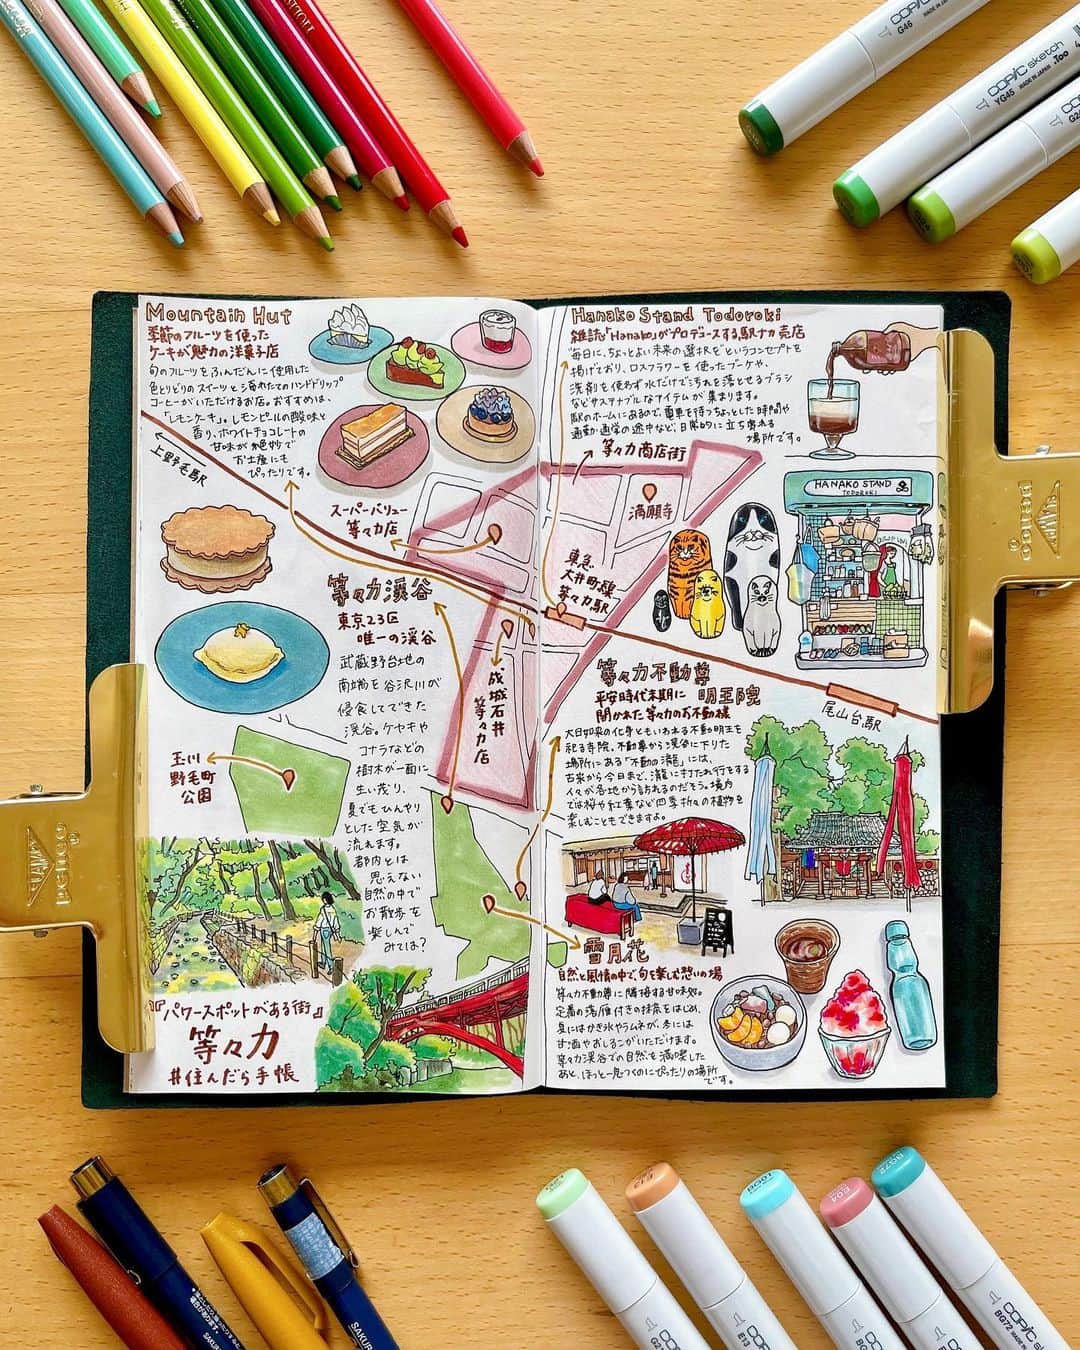 COPIC
G46
COPIC sketch
.Too
YG45
MADE IN JAPAN
COPIC
Mountain Hut
季節のフルーツを使った
ケーキが魅力の洋菓子店
旬のフルーツをふんだんに使用した
色とりどりのスイーツと淹れたてのハンドドリップ
コーヒーがいただけるお店。おすすめは、
「レモンケーキ」。レモンピールの酸味と
香り、ホワイトチョコレートの
甘味が絶妙で
お土産にも
ぴったりです。
上野毛駅
スーパーバリュー
等々力店
等々力渓谷
東京23区
唯一の渓谷
武蔵野台地の
南端を谷沢川が
侵食してできた
渓谷。ケヤキや
コナラなどの
樹木が一面に
生い茂り、
夏でもひんやり
とした空気が
流れます。
都内とは
思えない
自然の中で
お散歩を
楽しんで
みては?
成城石井
等々力店
玉川
野毛町
公園
『パワースポットがある街』
等々力
#住んだら手帳
Hanako Stand Todoroki
雑誌「Hanako」がプロデュースする駅ナカ売店
"毎日に、ちょっとよい未来の選択を"というコンセプトを
掲げており、ロスフラワーを使ったブーケや、
洗剤を使わず水だけで汚れを落とせるブラシ
などサステナブルなアイテムが集まります。
駅のホームにあるので、電車を待つちょっとした時間や
通勤・通学の途中など、日常的に立ち寄れる
場所です。
等々力商店街
満願寺
東急
大井町線
等々力駅
HANAKO STAND
TODOROKI
尾山台駅
等々力不動尊
明王院
平安時代末期に
開かれた等々力のお不動様
大日如来の化身ともいわれる不動明王を
祀る寺院。不動尊から渓谷に下りた
場所にある「不動の滝」には、
古来から今日まで、滝に打たれ行をする
人々が各地から訪れるのだそう。境内
では桜や紅葉など四季折々の植物を
楽しむこともできますよ。
雪月花
自然と風情の中で、旬を楽しむ憩いの場
等々力不動尊に隣接する甘味処。
定番の落雁付きの抹茶をはじめ、
夏にはかき氷やラムネが、冬には
甘酒やおしるこがいただけます。
等々力渓谷での自然を満喫した
あと、ほっと一息つくのにぴったりの場所
です。
penco
penco
SAKURA
SAKURA
E13
E04
BG72
COPIC
BG72
MADE IN JAPAN